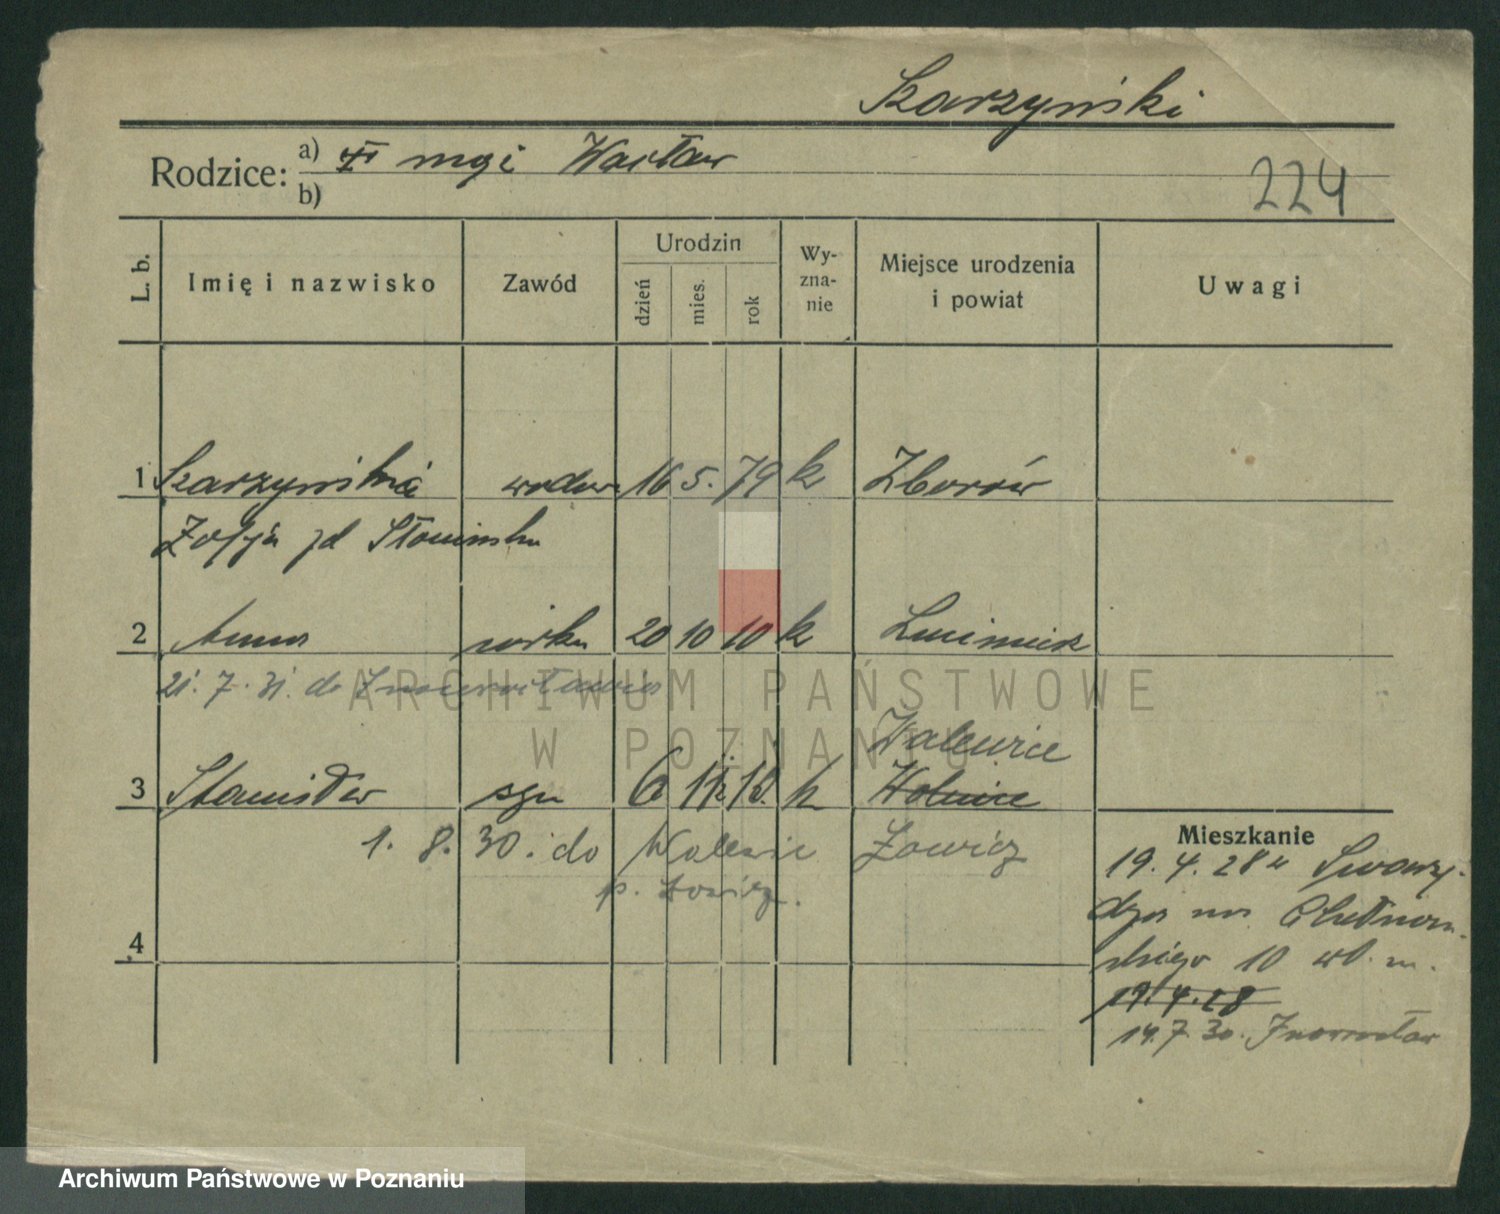 Skarzyński
Rodzice: a) mąż Wacław
b)
224
L. b. Imię i nazwisko Zawód Urodzin dzień mies. rok Wy-zna-nie Miejsce urodzenia i powiat Uwagi
1 Skarzyńska wdowa 16 5. 79 k Zborów
Zofja zd Słomińska
2 Anna córka 20 10 10 k
21. 7. 31. do Inowrocławia
Walewice
3 Stanisław syn 6 k
1. 8. 30. do Walewic Łowicz
p. Łowicz.
4
Mieszkanie
19. 4. 28 z Swarzę-
dza na
10 m.
19. 4. 28
14. 7. 30. Inowrocław
ARCHIWUM PAŃSTWOWE
W POZNANIU
Archiwum Państwowe w Poznaniu